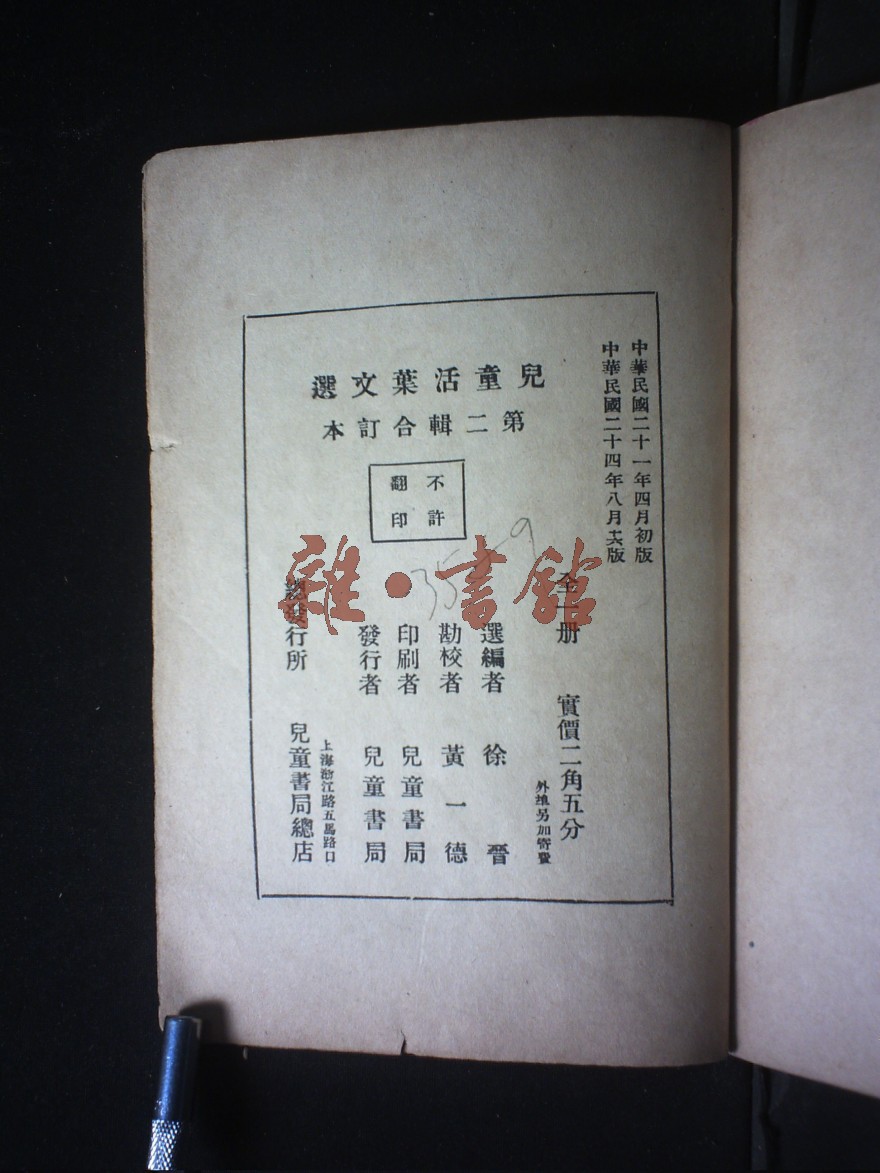 中華民國二十一年四月初版
中華民國二十四年八月十六版
兒童活葉文選
第二輯合訂本
不許
翻印
全一册 實價二角五分
外埠另加寄費
選編者 徐晉
勘校者 黃一德
印刷者 兒童書局
發行者 兒童書局
上海浙江路五馬路口
總發行所 兒童書局總店
雜·書館